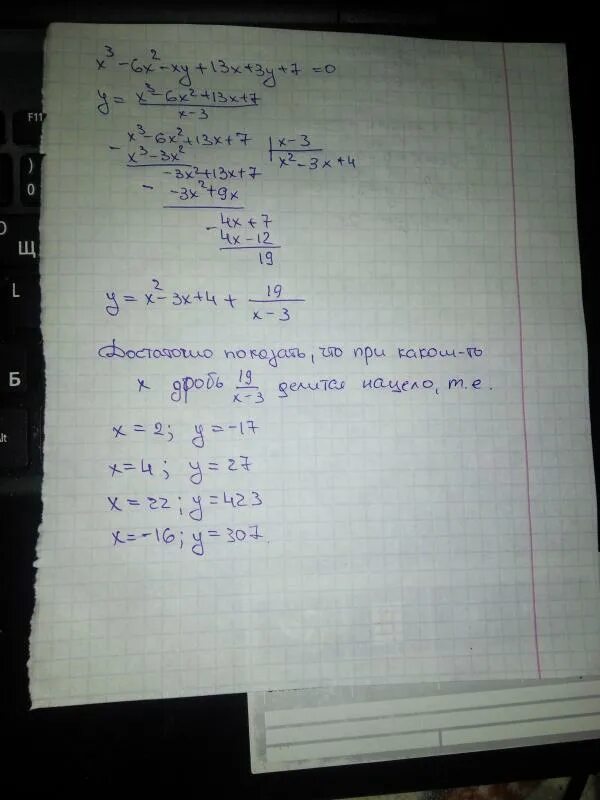 x³ - 6x² - xy + 13x + 3y + 7 = 0
y = x³ - 6x² + 13x + 7 / x - 3
- x³ - 6x² + 13x + 7 | x - 3
x³ - 3x² | x² - 3x + 4
- -3x² + 13x + 7
-3x² + 9x
- 4x + 7
4x - 12
19
y = x² - 3x + 4 + 19 / x - 3
Достаточно показать, что при каком-то
x дробь 19 / x - 3 делится нацело, т.е.
x = 2; y = -17
x = 4; y = 27
x = 22; y = 423
x = -16; y = 307.
F11
)
0
Щ
L
Б
Alt